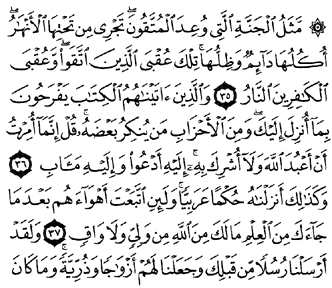 ۞ مَّثَلُ ٱلْجَنَّةِ ٱلَّتِى وُعِدَ ٱلْمُتَّقُونَ ۖ تَجْرِى مِن تَحْتِهَا ٱلْأَنْهَٰرُ ۖ
أُكُلُهَا دَآئِمٌ وَظِلُّهَا ۚ تِلْكَ عُقْبَى ٱلَّذِينَ ٱتَّقَوا۟ ۖ وَّعُقْبَى
ٱلْكَٰفِرِينَ ٱلنَّارُ ٣٥ وَٱلَّذِينَ ءَاتَيْنَٰهُمُ ٱلْكِتَٰبَ يَفْرَحُونَ
بِمَآ أُنزِلَ إِلَيْكَ ۖ وَمِنَ ٱلْأَحْزَابِ مَن يُنكِرُ بَعْضَهُۥ ۚ قُلْ إِنَّمَآ أُمِرْتُ
أَنْ أَعْبُدَ ٱللَّهَ وَلَآ أُشْرِكَ بِهِۦٓ ۚ إِلَيْهِ أَدْعُوا۟ وَإِلَيْهِ مَـَٔابِ ٣٦
وَكَذَٰلِكَ أَنزَلْنَٰهُ حُكْمًا عَرَبِيًّا ۚ وَلَئِنِ ٱتَّبَعْتَ أَهْوَآءَهُم بَعْدَ مَا
جَآءَكَ مِنَ ٱلْعِلْمِ مَا لَكَ مِنَ ٱللَّهِ مِن وَلِىٍّ وَلَا وَاقٍ ٣٧ وَلَقَدْ
أَرْسَلْنَا رُسُلًا مِّن قَبْلِكَ وَجَعَلْنَا لَهُمْ أَزْوَٰجًا وَذُرِّيَّةً ۚ وَمَا كَانَ